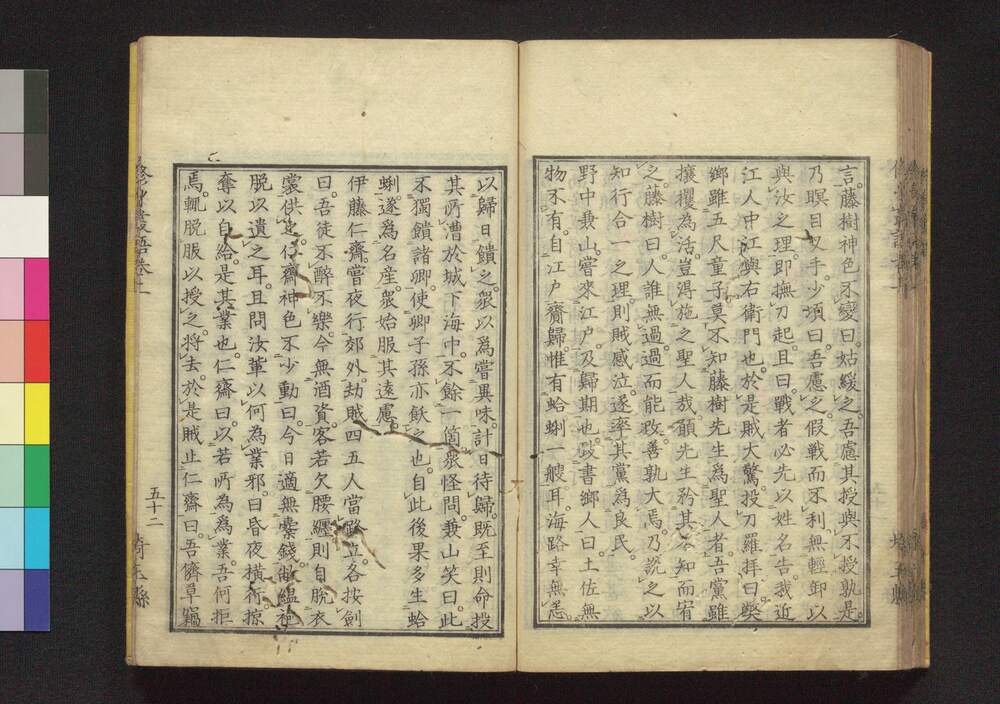 言藤樹神色不變曰姑緩之吾慮其授與不授孰是
乃瞑目叉手少頃曰吾慮之假戰而不利無輕卸以
與汝之理即撫刀起且曰戰者必先以姓名告我近
江人中江與右衛門也於是賊大驚投刀羅拜曰弊
鄉雖五尺童子莫不知藤樹先生為聖人者吾黨雖
攘攫為活豈淂施之聖人哉願先生矜其不知而宥
之藤樹曰人誰無過過而能改善孰大焉乃說之以
知行合一之理則賊感泣遂率其黨為良民
野中兼山嘗來江戶及歸期也致書鄉人曰土佐無
物不有自江戶齎歸惟有蛤蜊一艘耳海路幸無恙
以歸日饋之眾以為嘗異味計日待歸既至則命投
其所漕於城下海中不餘一箇眾怪問兼山笑曰此
不獨饋諸卿使卿子孫亦飫之也自此後果多生蛤
蜊遂為名產眾始服其遠慮
伊藤仁齋嘗夜行郊外劫賊四五人當路立各按劍
曰吾徒不醉不樂今無酒資客若欠腰纏則自脫衣
裳供之仁齋神色不少動曰今日適無橐錢敝縕袍
脫以遺之耳且問汝輩以何為業邪曰昏夜橫行掠
奪以自給是其業也仁齋曰以若所為為業吾何拒
焉輒脫服以授之將去於是賊止仁齋曰吾儕草竊
五十二
埼玉縣